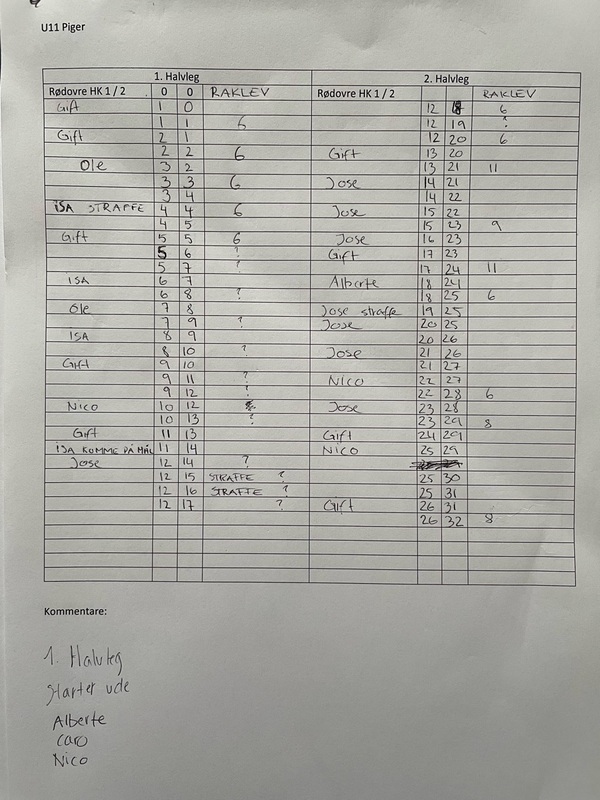 U11 Piger
1. Halvleg 2. Halvleg
Rødovre HK 1 / 2 0 0 RAKLEV Rødovre HK 1 / 2 RAKLEV
Gift 1 0 12 18 6
1 1 6 12 19 ?
Gift 2 1 12 20 6
2 2 6 Gift 13 20
Ole 3 2 13 21 11
3 3 6 Jose 14 21
3 4 14 22
ISA STRAFFE 4 4 6 Jose 15 22
4 5 15 23 9
Gift 5 5 6 Jose 16 23
5 6 ? Gift 17 23
5 7 ? 17 24 11
ISA 6 7 Alberte 18 24
6 8 ? 18 25 6
Ole 7 8 Jose straffe 19 25
7 9 ? Jose 20 25
ISA 8 9 20 26
8 10 ? Jose 21 26
Gift 9 10 21 27
9 11 ? Nico 22 27
9 12 ? 22 28 6
Nico 10 12 Jose 23 28
10 13 ? 23 29 8
Gift 11 13 Gift 24 29
ISA KOMME PÅ MÅL 11 14 Nico 25 29
Jose 12 14 ?
12 15 STRAFFE ? 25 30
12 16 STRAFFE ? 25 31
12 17 ? Gift 26 31
26 32 8
Kommentare:
1. Halvleg
Starter ude
Alberte
Caro
Nico